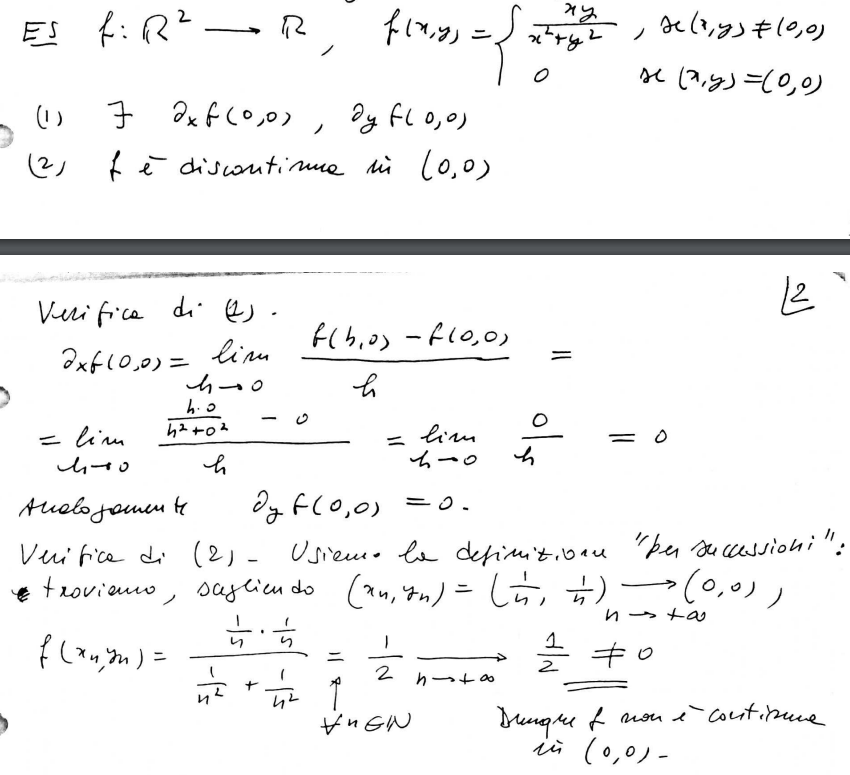 ES f: ℝ² → ℝ, f(x,y) = { xy/(x²+y²), se (x,y)≠(0,0)
0 se (x,y)=(0,0)
(1) ∃ ∂xf(0,0), ∂yf(0,0)
(2) f è discontinua in (0,0)
2
Verifica di (1).
∂xf(0,0) = lim h→0 (f(h,0) - f(0,0))/h =
= lim h→0 ((h·0)/(h²+0²) - 0)/h = lim h→0 0/h = 0
Analogamente ∂yf(0,0) = 0.
Verifica di (2). Usiamo la definizione "per successioni":
troviamo, scegliendo (xn,yn) = (1/n, 1/n) → n→+∞ (0,0),
f(xn,yn) = (1/n · 1/n)/(1/n² + 1/n²) = 1/2 → n→+∞ 1/2 ≠ 0
↑ ∀n∈ℕ
Dunque f non è continua
in (0,0).